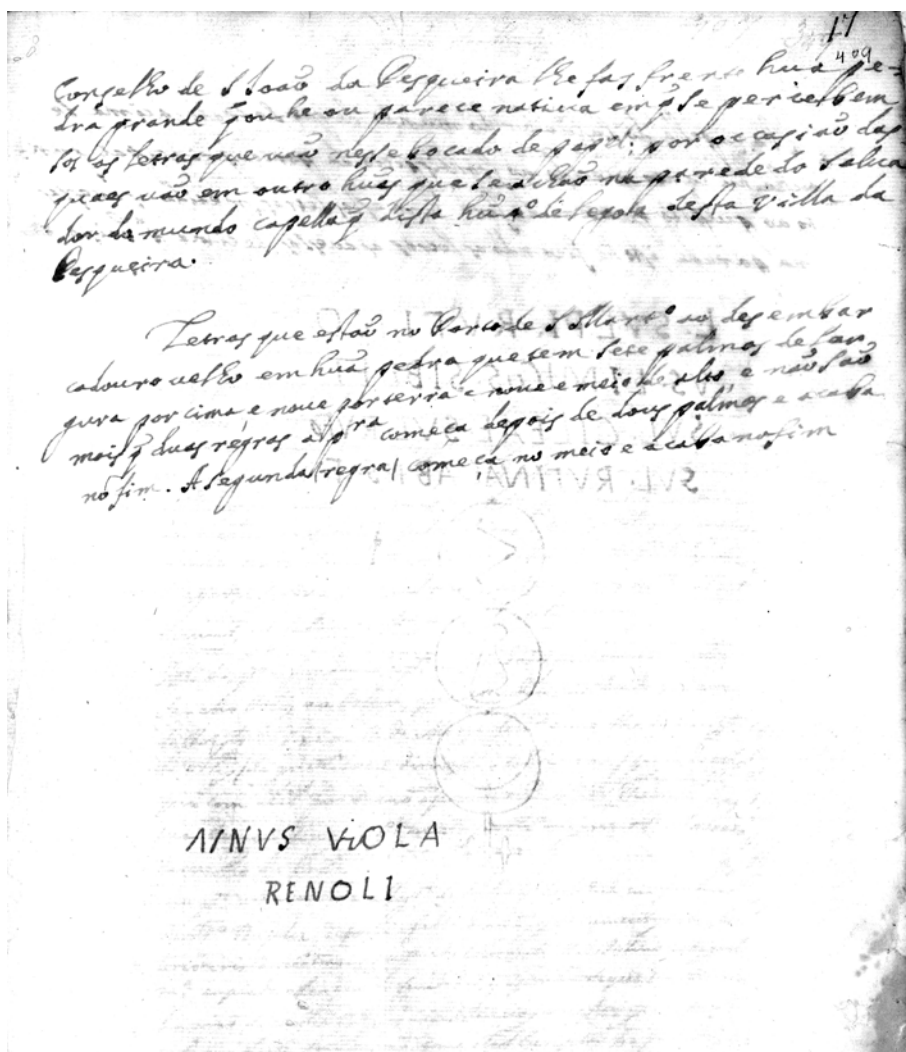 17
409
Conselho de S Joaõ da Pesqueira lhe fas frente hua pe-
dra grande q̃ ou he ou parece natiua em q̃ se percebem
sos as letras que uaõ nesse bocado de papel; por occasiaõ das
quaes uaõ em outro huãs que se achaõ na parede do Salua
dor do mundo capella q̃ dista hũ 4º de legoa desta Villa da
Pesqueira.
Letras que estaõ no Porto de S. Marº ao desembar
cadouro uelho em huã pedra que tem sete palmos de lar
gura por cima e noue por terra e noue e meio de alto, e naõ saõ
mais q̃ duas regras a pra começa depois de dous palmos e acaba
no fim. A segunda (regra) começa no meio e acaba no fim
ΛINVS ViOLA
RENOLI